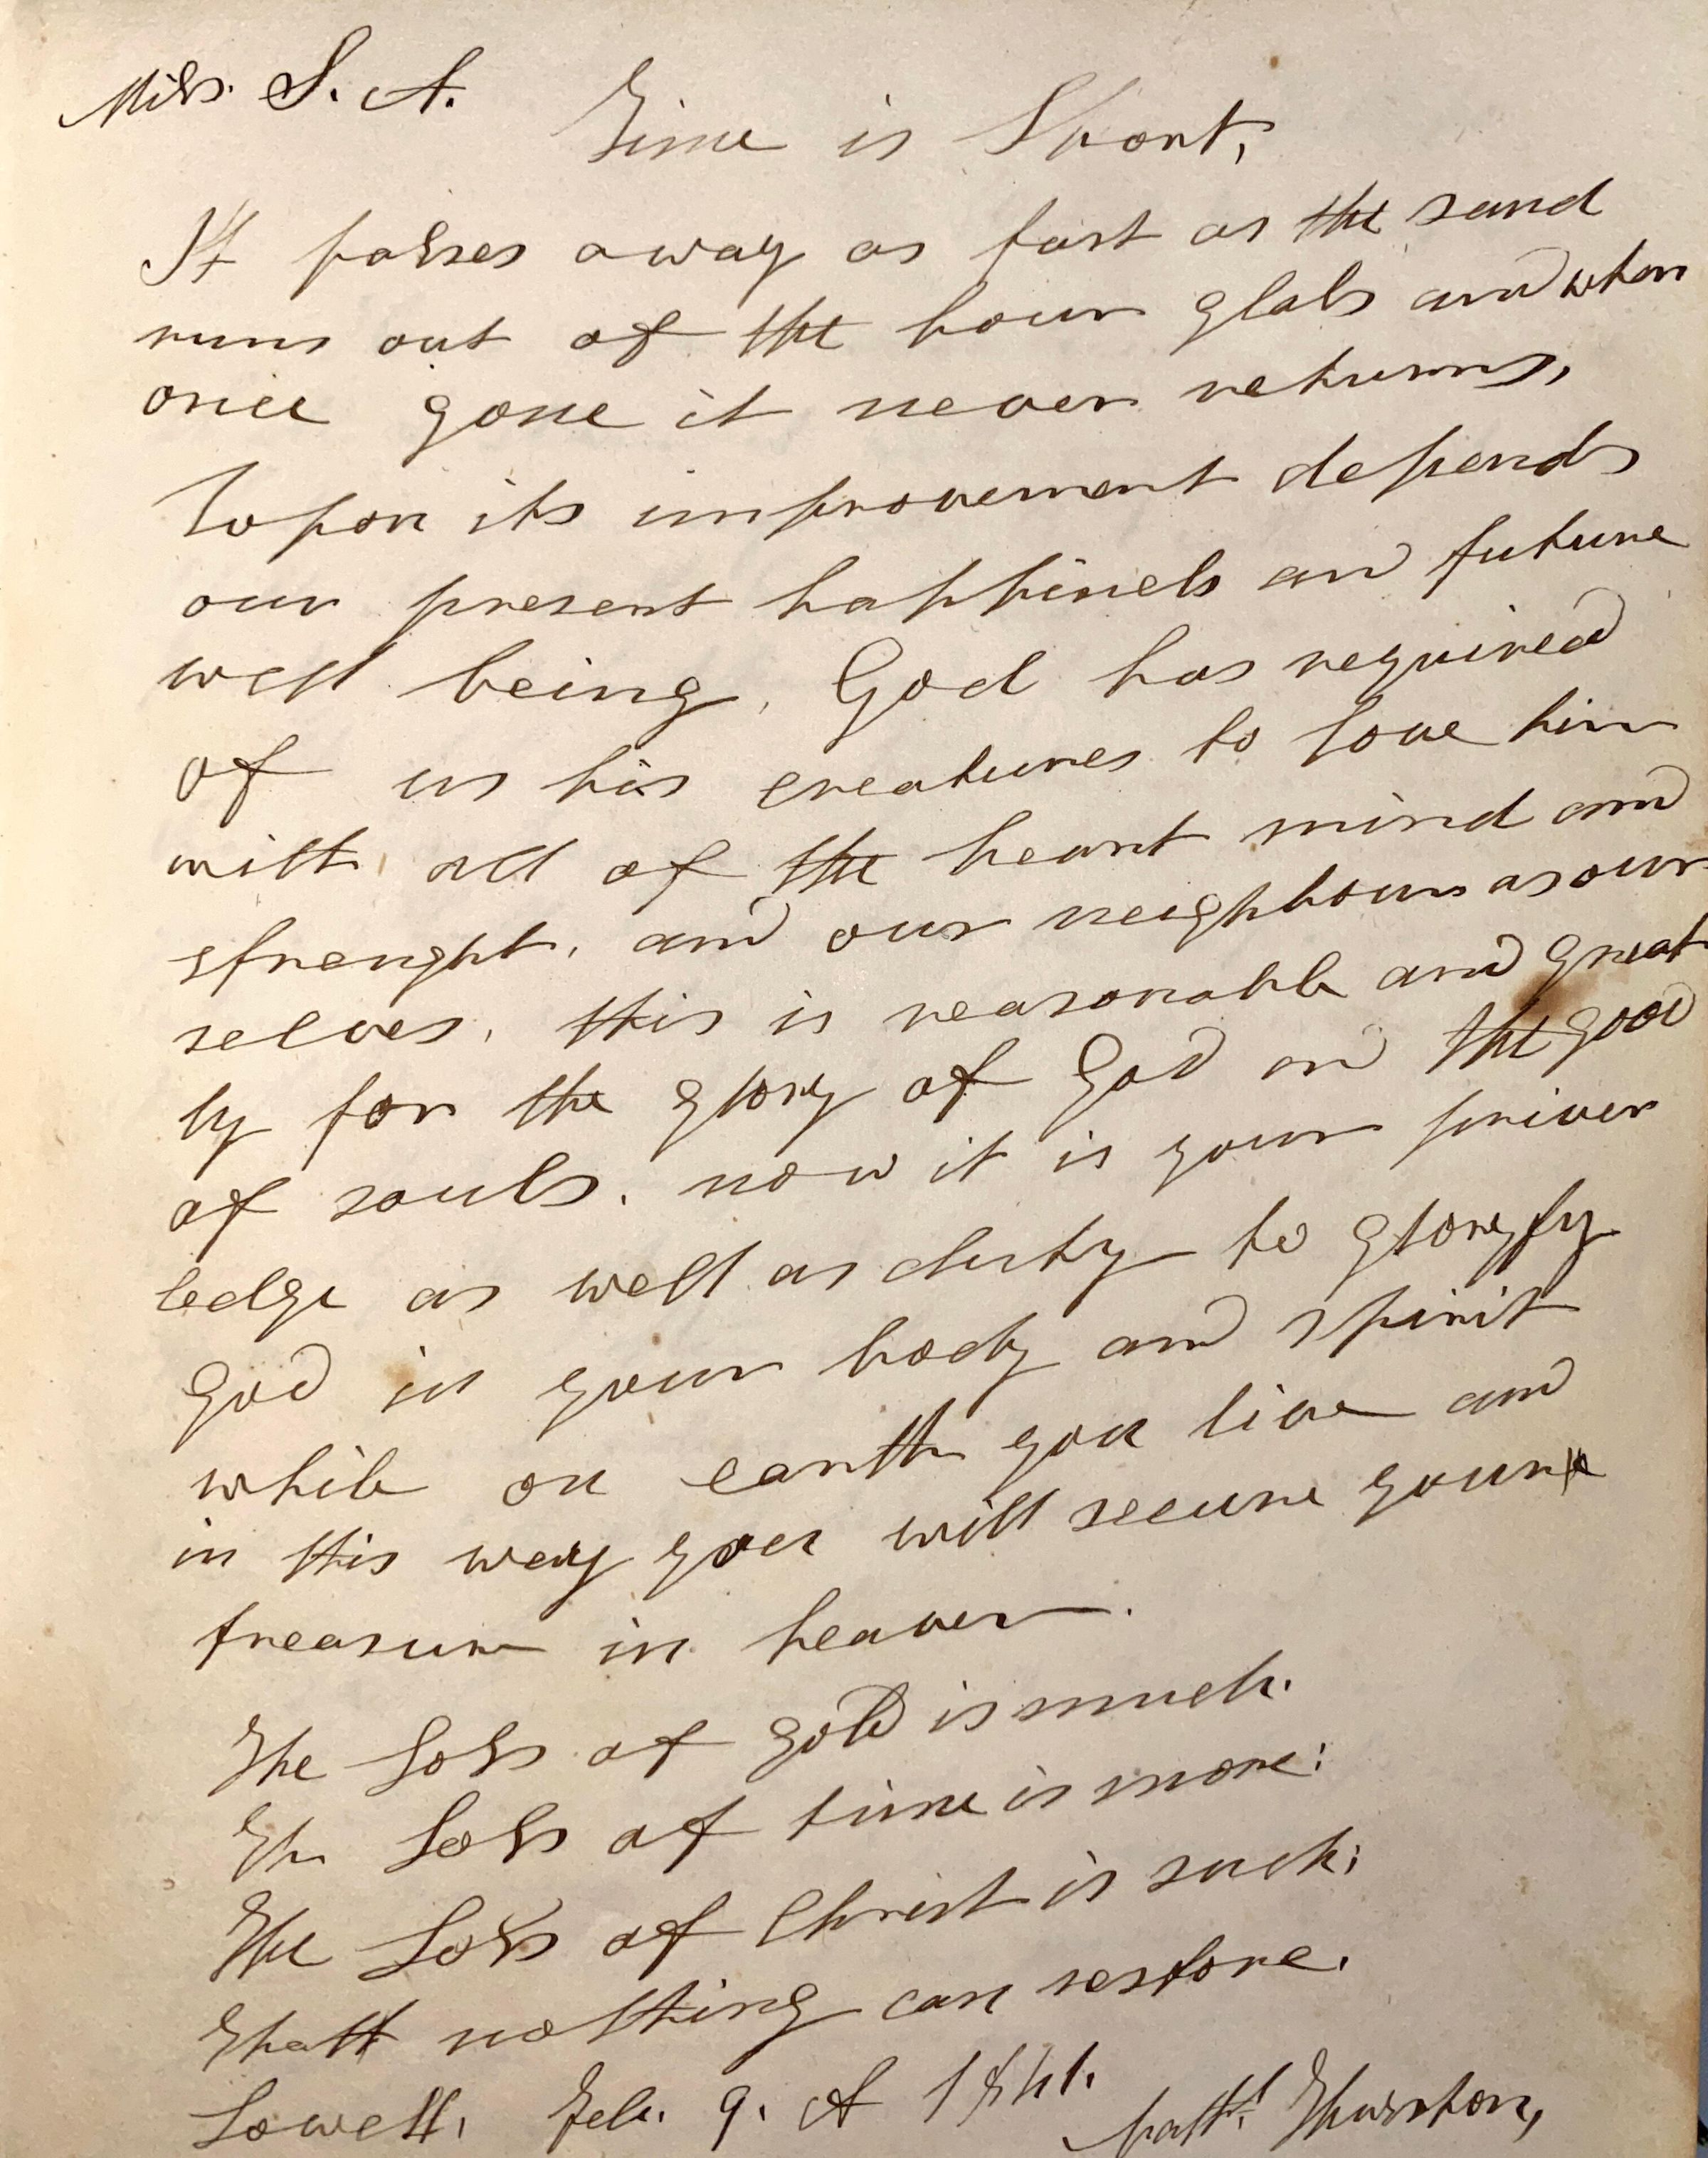 Miss. S. A.
Time is Short,
It passes away as fast as the sand
runs out of the hour glass and when
once gone it never returns,
Upon its improvement depends
our present happiness and future
well being, God has required
of us his creatures to love him
with all of the heart mind and
strenght, and our neighbours as our
selves, this is reasonable and great
ly for the glory of God and the good
of souls. now it is your priver
ledge as well as duty to gloryfy
God in your body and spirit
while on earth you live and
in this way you will secure your
treasure in heaven.
The Loss of gold is much.
The Loss of time is more:
The Loss of Christ is such;
That nothing can restore.
Lowell, Feb. 9. A 1841.
Thurston,